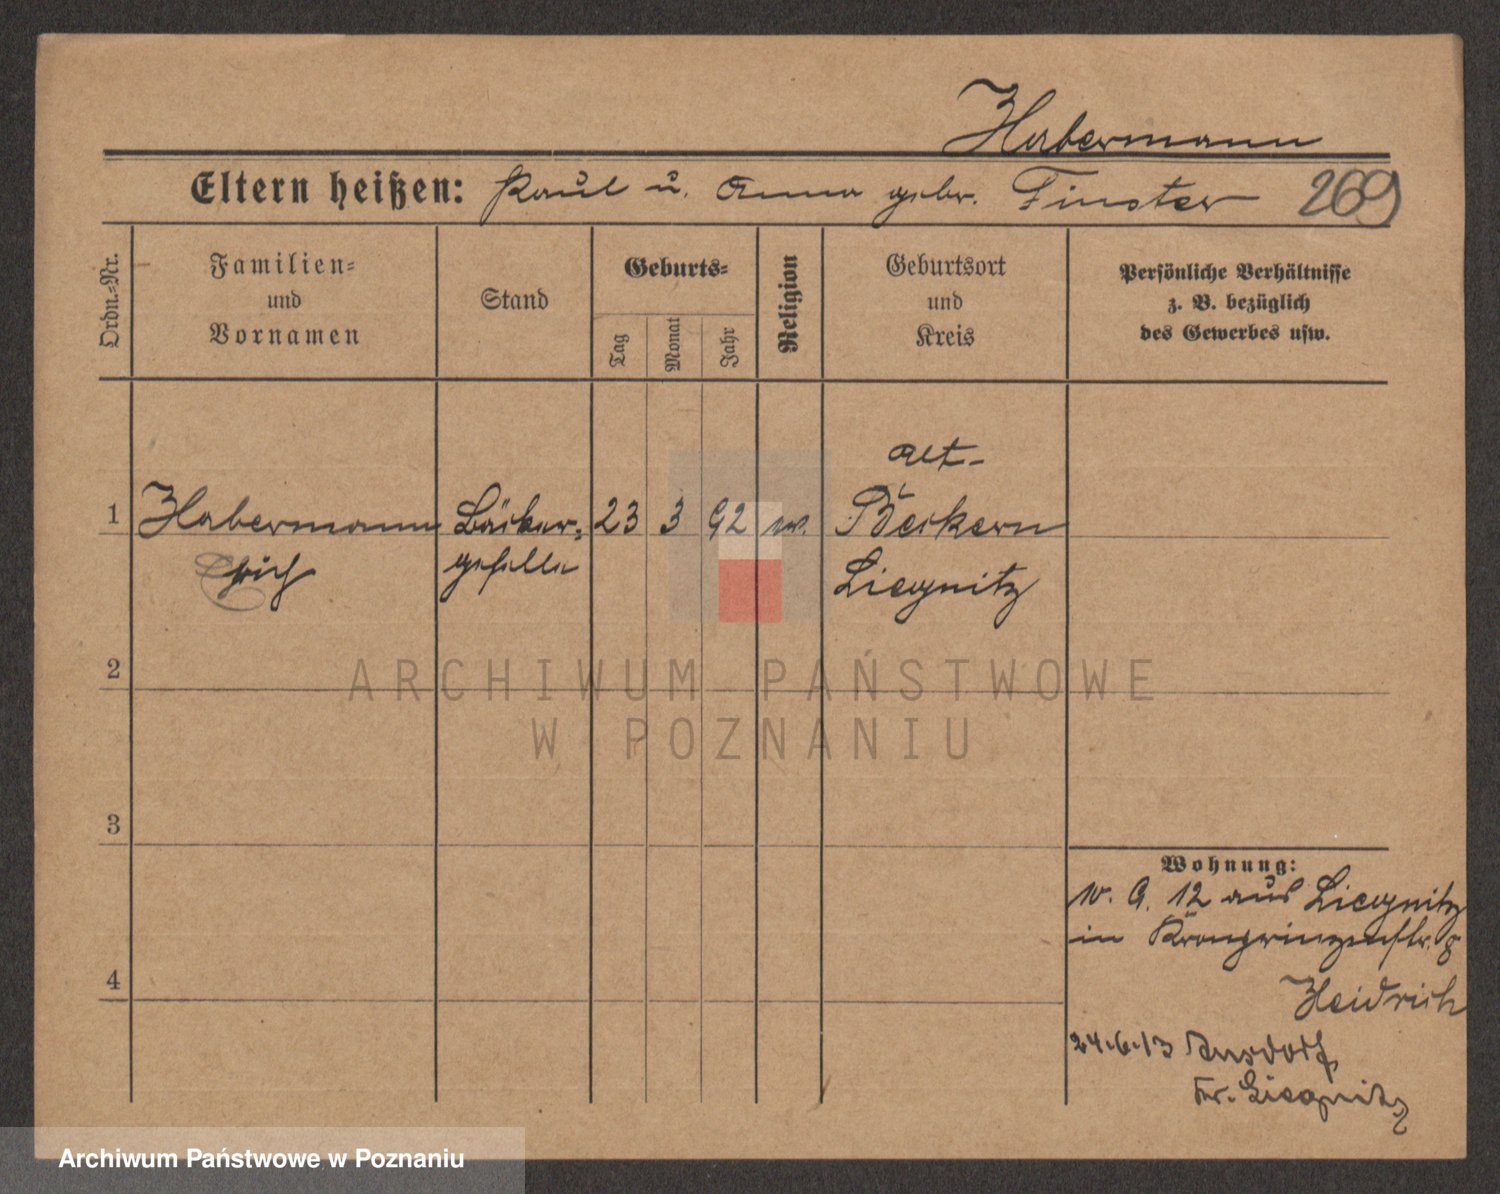 Habermann
Eltern heißen: Paul u. Anna gebr. Finster 269
Ordn.-Nr.
Familien-
und
Vornamen
Stand
Geburts-
Tag
Monat
Jahr
Religion
Geburtsort
und
Kreis
Persönliche Verhältnisse
z. B. bezüglich
des Gewerbes usw.
1 Habermann Bäcker- 23 3 92 Alt-
Beckern
Erich geselle Liegnitz
2
3
4
Wohnung:
12 aus Liegnitz
in Kronprinzenstr. 8
Heidrich
24.6.13
Kr. Liegnitz
ARCHIWUM PAŃSTWOWE
W POZNANIU
Archiwum Państwowe w Poznaniu